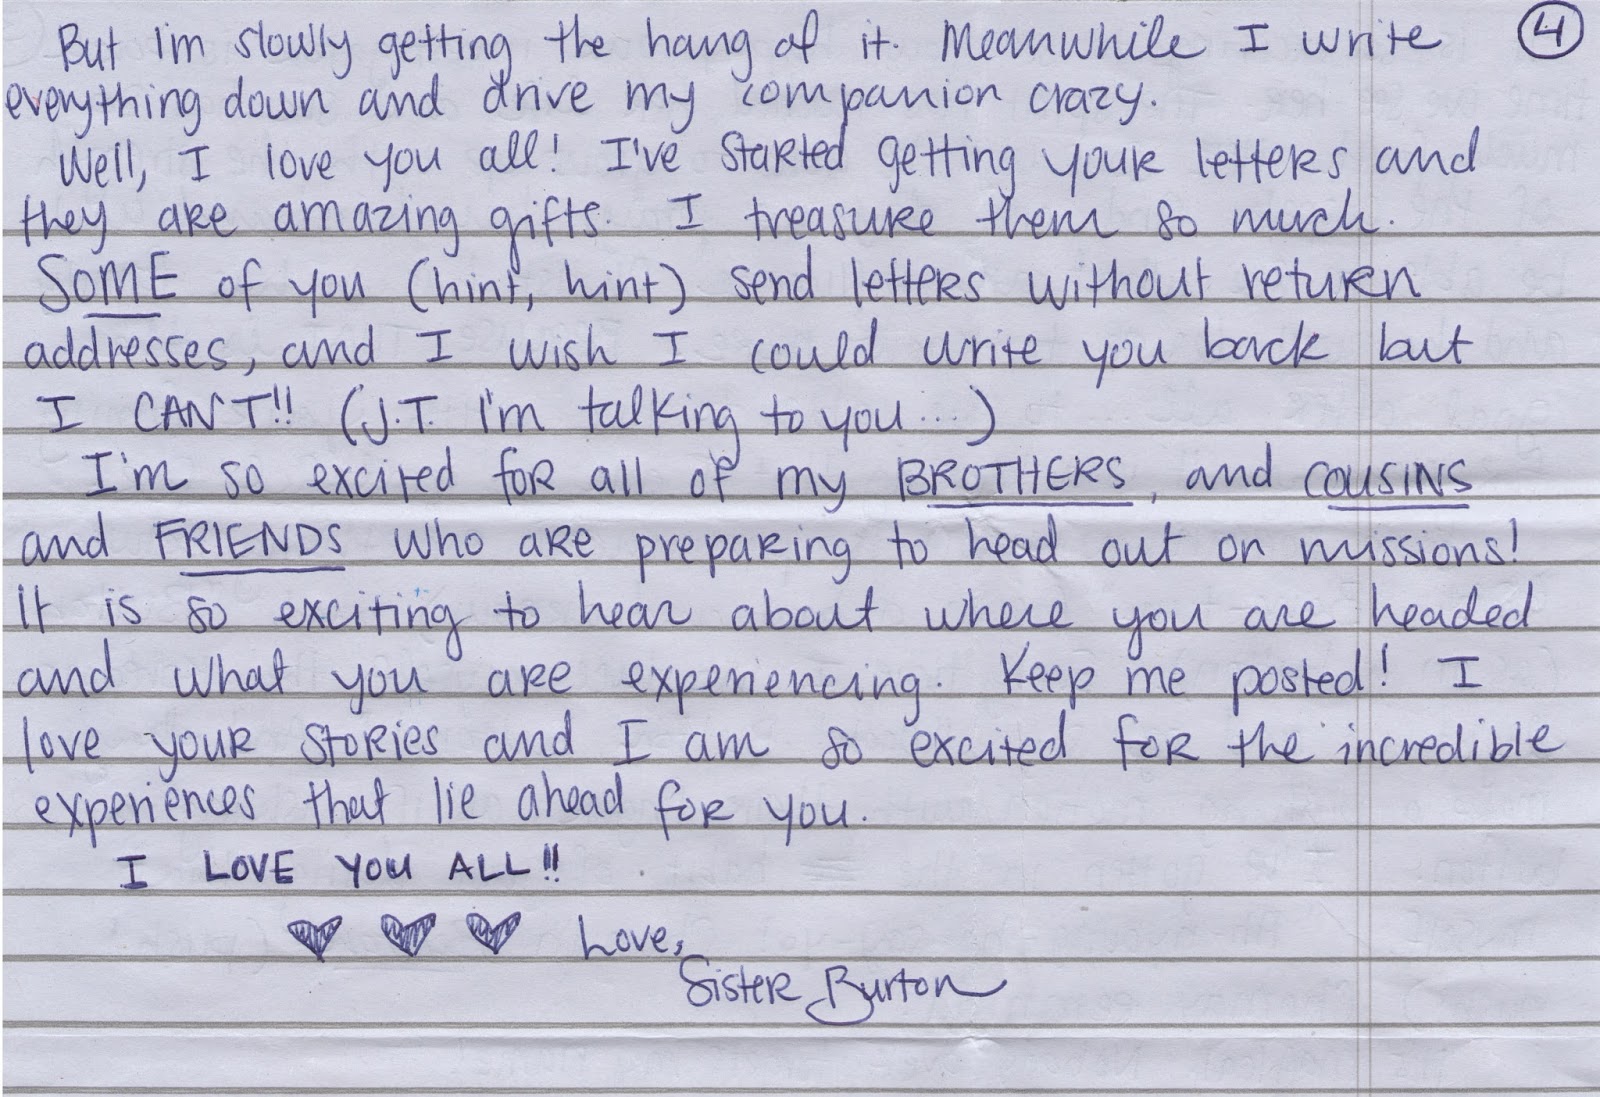 But I'm slowly getting the hang of it. Meanwhile I write ④
everything down and drive my companion crazy.
Well, I love you all! I've started getting your letters and
they are amazing gifts. I treasure them so much.
SOME of you (hint, hint) send letters without return
addresses, and I wish I could write you back but
I CAN'T!! (J.T. I'm talking to you...)
I'm so excited for all of my BROTHERS, and COUSINS
and FRIENDS who are preparing to head out on missions!
It is so exciting to hear about where you are headed
and what you are experiencing. Keep me posted! I
love your stories and I am so excited for the incredible
experiences that lie ahead for you.
I LOVE YOU ALL!!
♥ ♥ ♥ Love,
Sister Burton